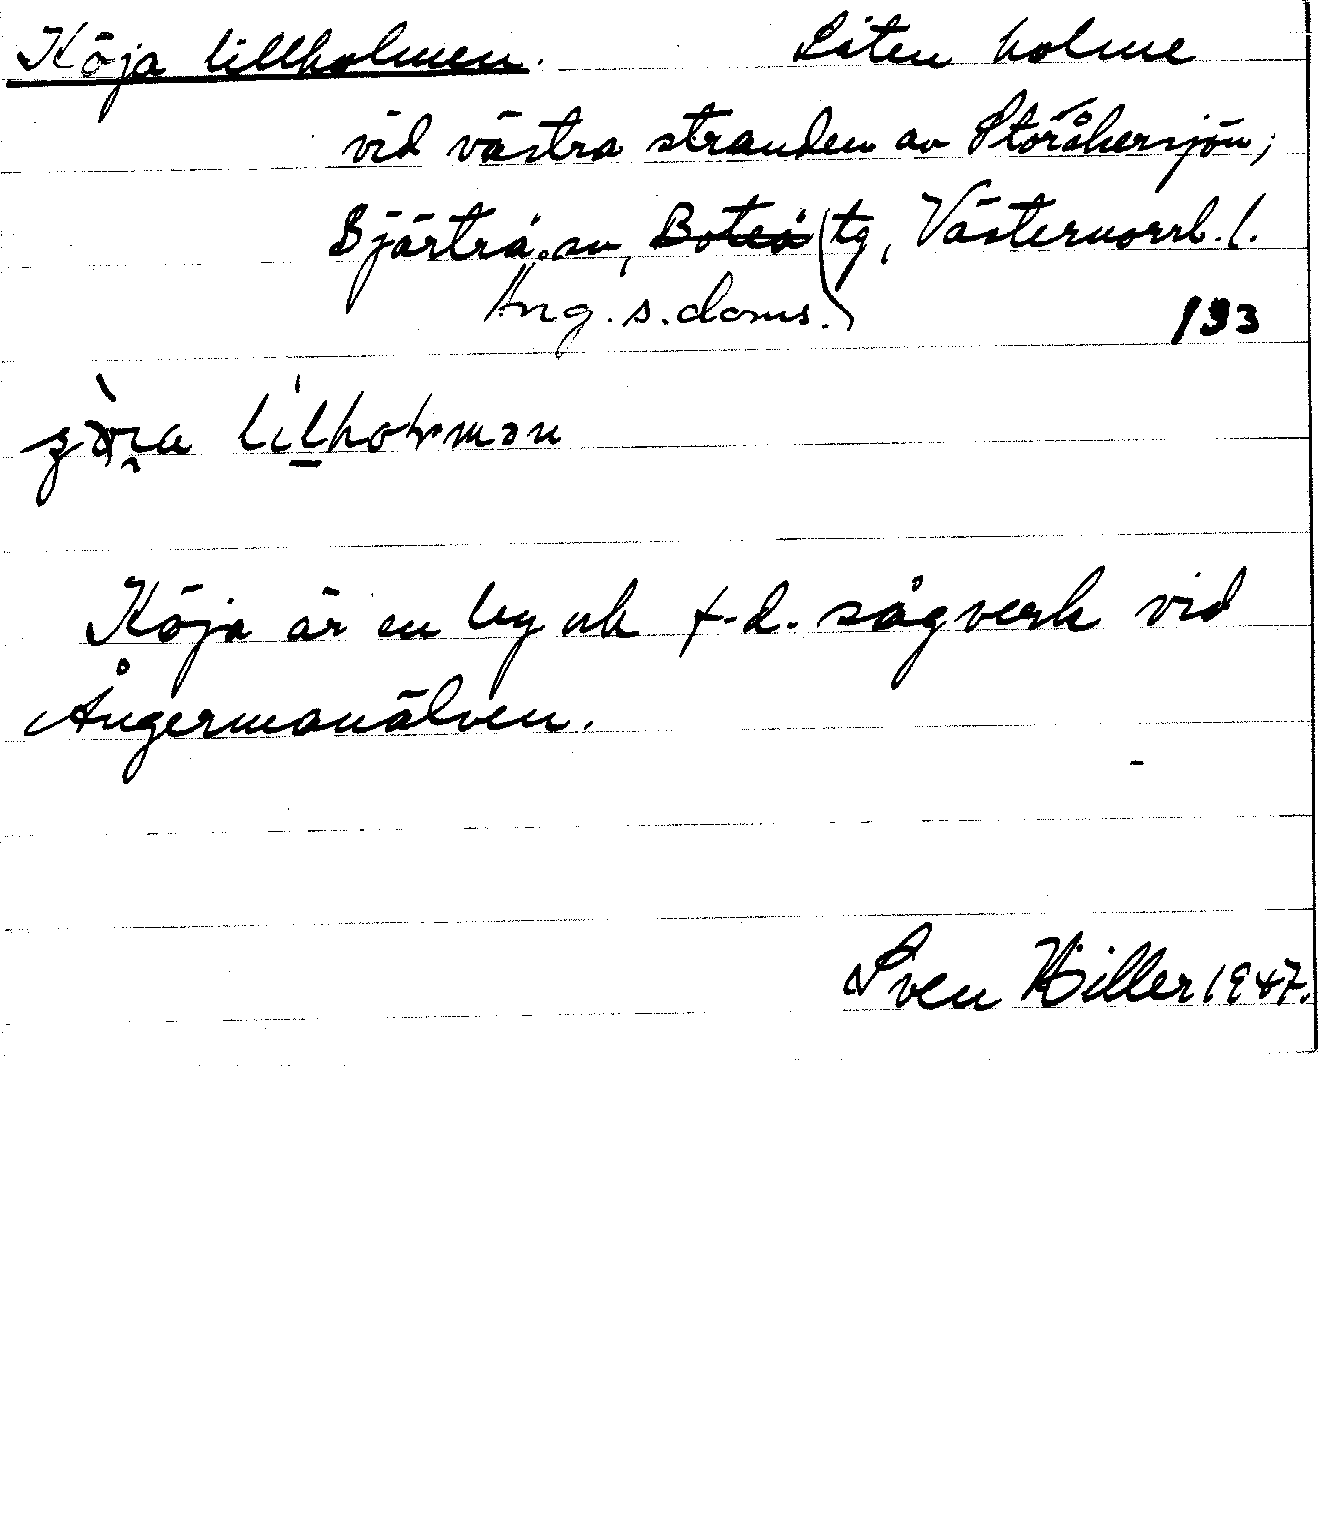 Köja lillholmen. Liten holme
vid västra stranden av Storåkersjön;
Bjärtrå sn, Boteå tg, Västernorrl. l.
Ång. s. doms.
193
lilholmən
Köja är en by och f.d. sågverk vid
Ångermanälven.
Sven Hiller 1947.